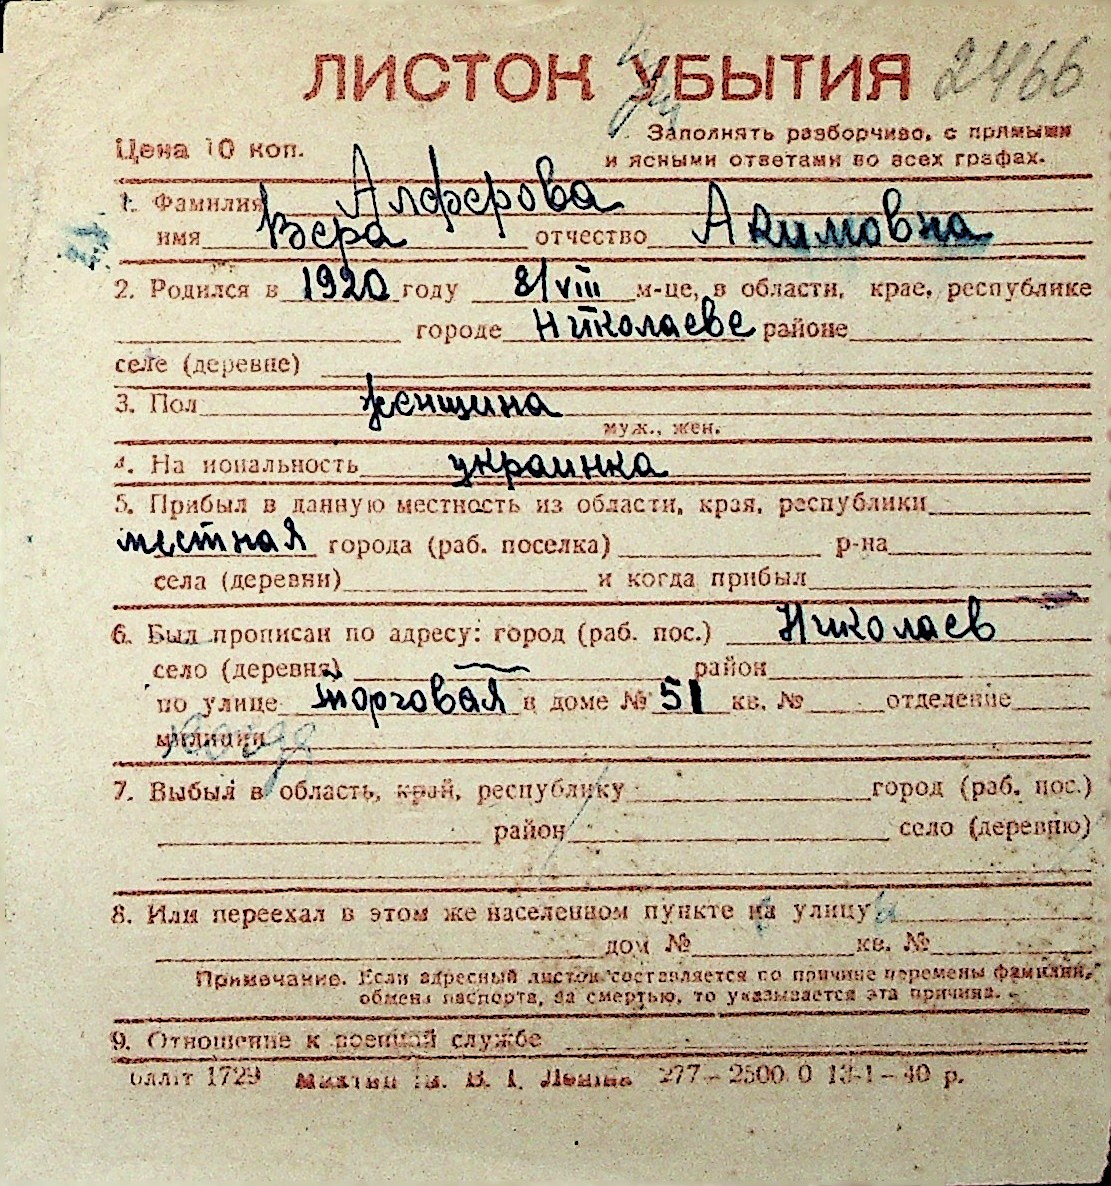 ЛИСТОК УБЫТИЯ 2466
Цена 10 коп.
Заполнять разборчиво, с прямыми
и ясными ответами во всех графах.
1. Фамилия Алферова
имя Вера отчество Акимовна
2. Родился в 1920 году 8/VIII м-це, в области, крае, республике
городе Николаеве районе
селе (деревне)
3. Пол женщина
муж., жен.
4. На иональность украинка
5. Прибыл в данную местность из области, края, республики
местная города (раб. поселка) р-на
села (деревни) и когда прибыл
6. Был прописан по адресу: город (раб. пос.) Николаев
село (деревня) район
по улице Торговая в доме № 51 кв. № отделение
милиции
7. Выбыл в область, край, республику город (раб. пос.)
район село (деревню)
8. Или переехал в этом же населенном пункте на улицу
дом № кв. №
Примечание. Если адресный листок составляется по причине перемены фамилии,
обмена паспорта, за смертью, то указывается эта причина.
9. Отношение к военной службе
1729 В. І. Леніна 277–2500 0 13-1–40 р.